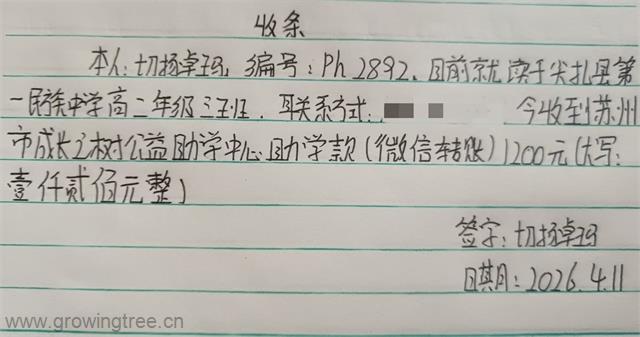 收条
本人:切扬卓玛,编号:Ph2892.目前就读于尖扎县第
一民族中学高二年级三班.联系方式: 今收到苏州
市成长之树公益助学中心助学款(微信转账)1200元(大写:
壹仟贰佰元整)
签字:切扬卓玛
日期:2026.4.11
www.growingtree.cn